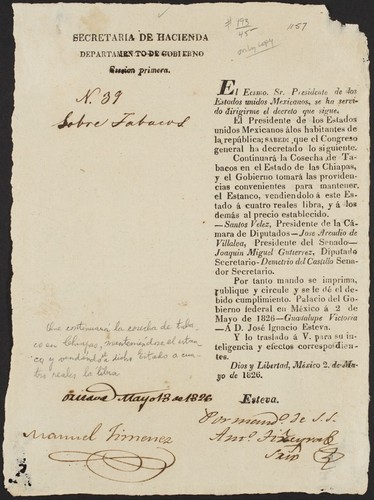 # 193
45
only copy
1157
SECRETARIA DE HACIENDA
DEPARTAMENTO DE GOBIERNO
Seccion primera.
N. 39
Sobre Tabacos
EL EXCMO. Sr. Presidente de los
Estados unidos Mexicanos, se ha servi-
do dirigirme el decreto que sigue.
El Presidente de los Estados
unidos Mexicanos á los habitantes de
la república; SABED: que el Congreso
general ha decretado lo siguiente.
Continuará la Cosecha de Ta-
bacos en el Estado de las Chiapas,
y el Gobierno tomará las providen-
cias convenientes para mantener,
el Estanco, vendiendolo á este Esta-
do á cuatro reales libra, y á los
demás al precio establecido.
—Santos Velez, Presidente de la Cá-
mara de Diputados—Jose Arcadio de
Villalva, Presidente del Senado—
Joaquin Miguel Gutierrez, Diputado
Secretario—Demetrio del Castillo Sena-
dor Secretario.
Por tanto mando se imprima,
publique y circule y se le dé el de-
bido cumplimiento. Palacio del Go-
bierno federal en México á 2 de
Mayo de 1826—Guadalupe Victoria
—A D. José Ignacio Esteva.
Y lo traslado á V. para su in-
teligencia y efectos correspondien-
tes.
Dios y Libertad, México 2. de Ma-
yo de 1826.
Esteva.
Que continuará la cosecha de taba-
co en Chiapas, manteniéndose el estan-
co y vendiendo á dicho Estado a cua-
tro reales la libra.
Mayo 13 de 1826
Manuel Ximenez
Por mand.º de S.S.
Srio